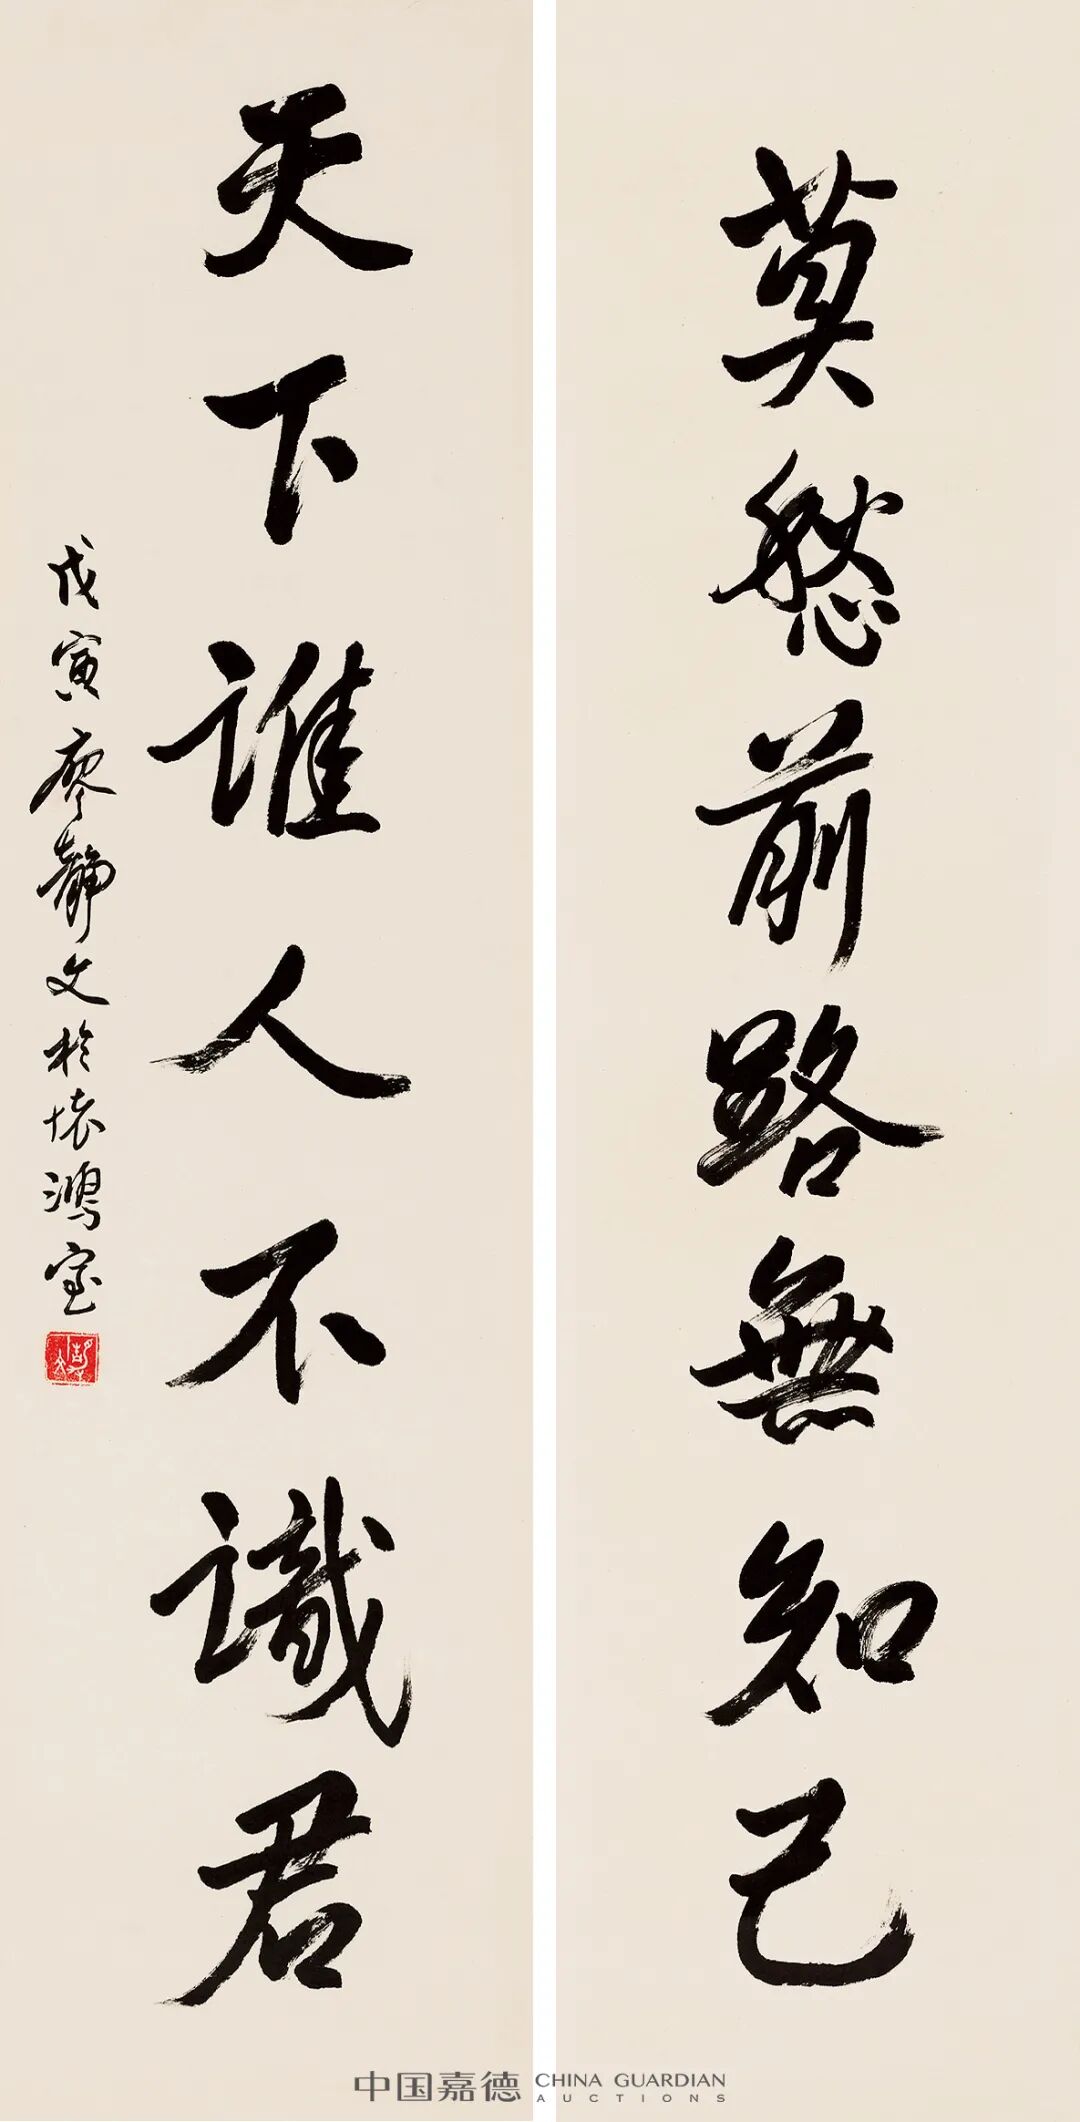 莫愁前路無知己
天下誰人不識君
戊寅廖靜文於懷鴻室
中国嘉德 CHINA GUARDIAN
AUCTIONS